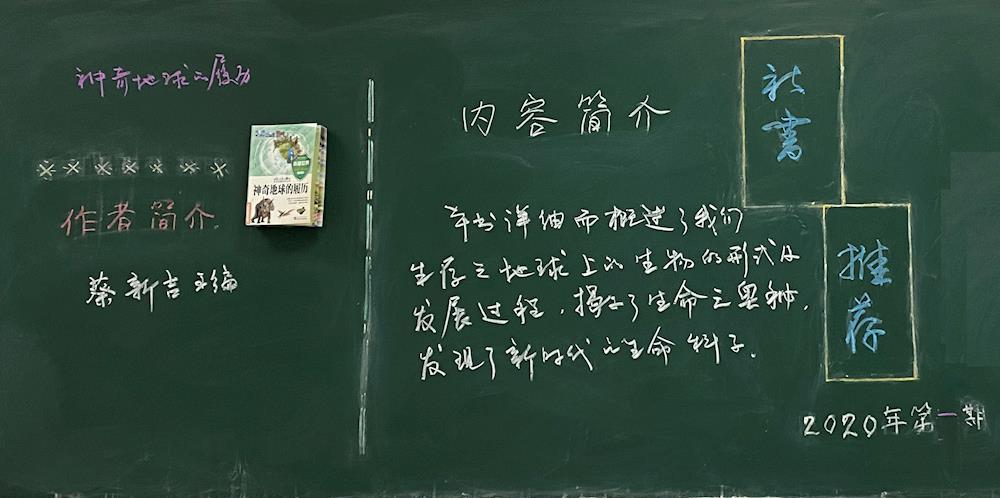 神奇地球的履历
神奇地球的履历
作者简介
蔡新吉 主编
内容简介
本书详细而概述了我们
生存之地球上的生物的形式及
发展过程，揭了生命之奥秘，
发现了新时代的生命科学。
新书
推荐
2020年第一期